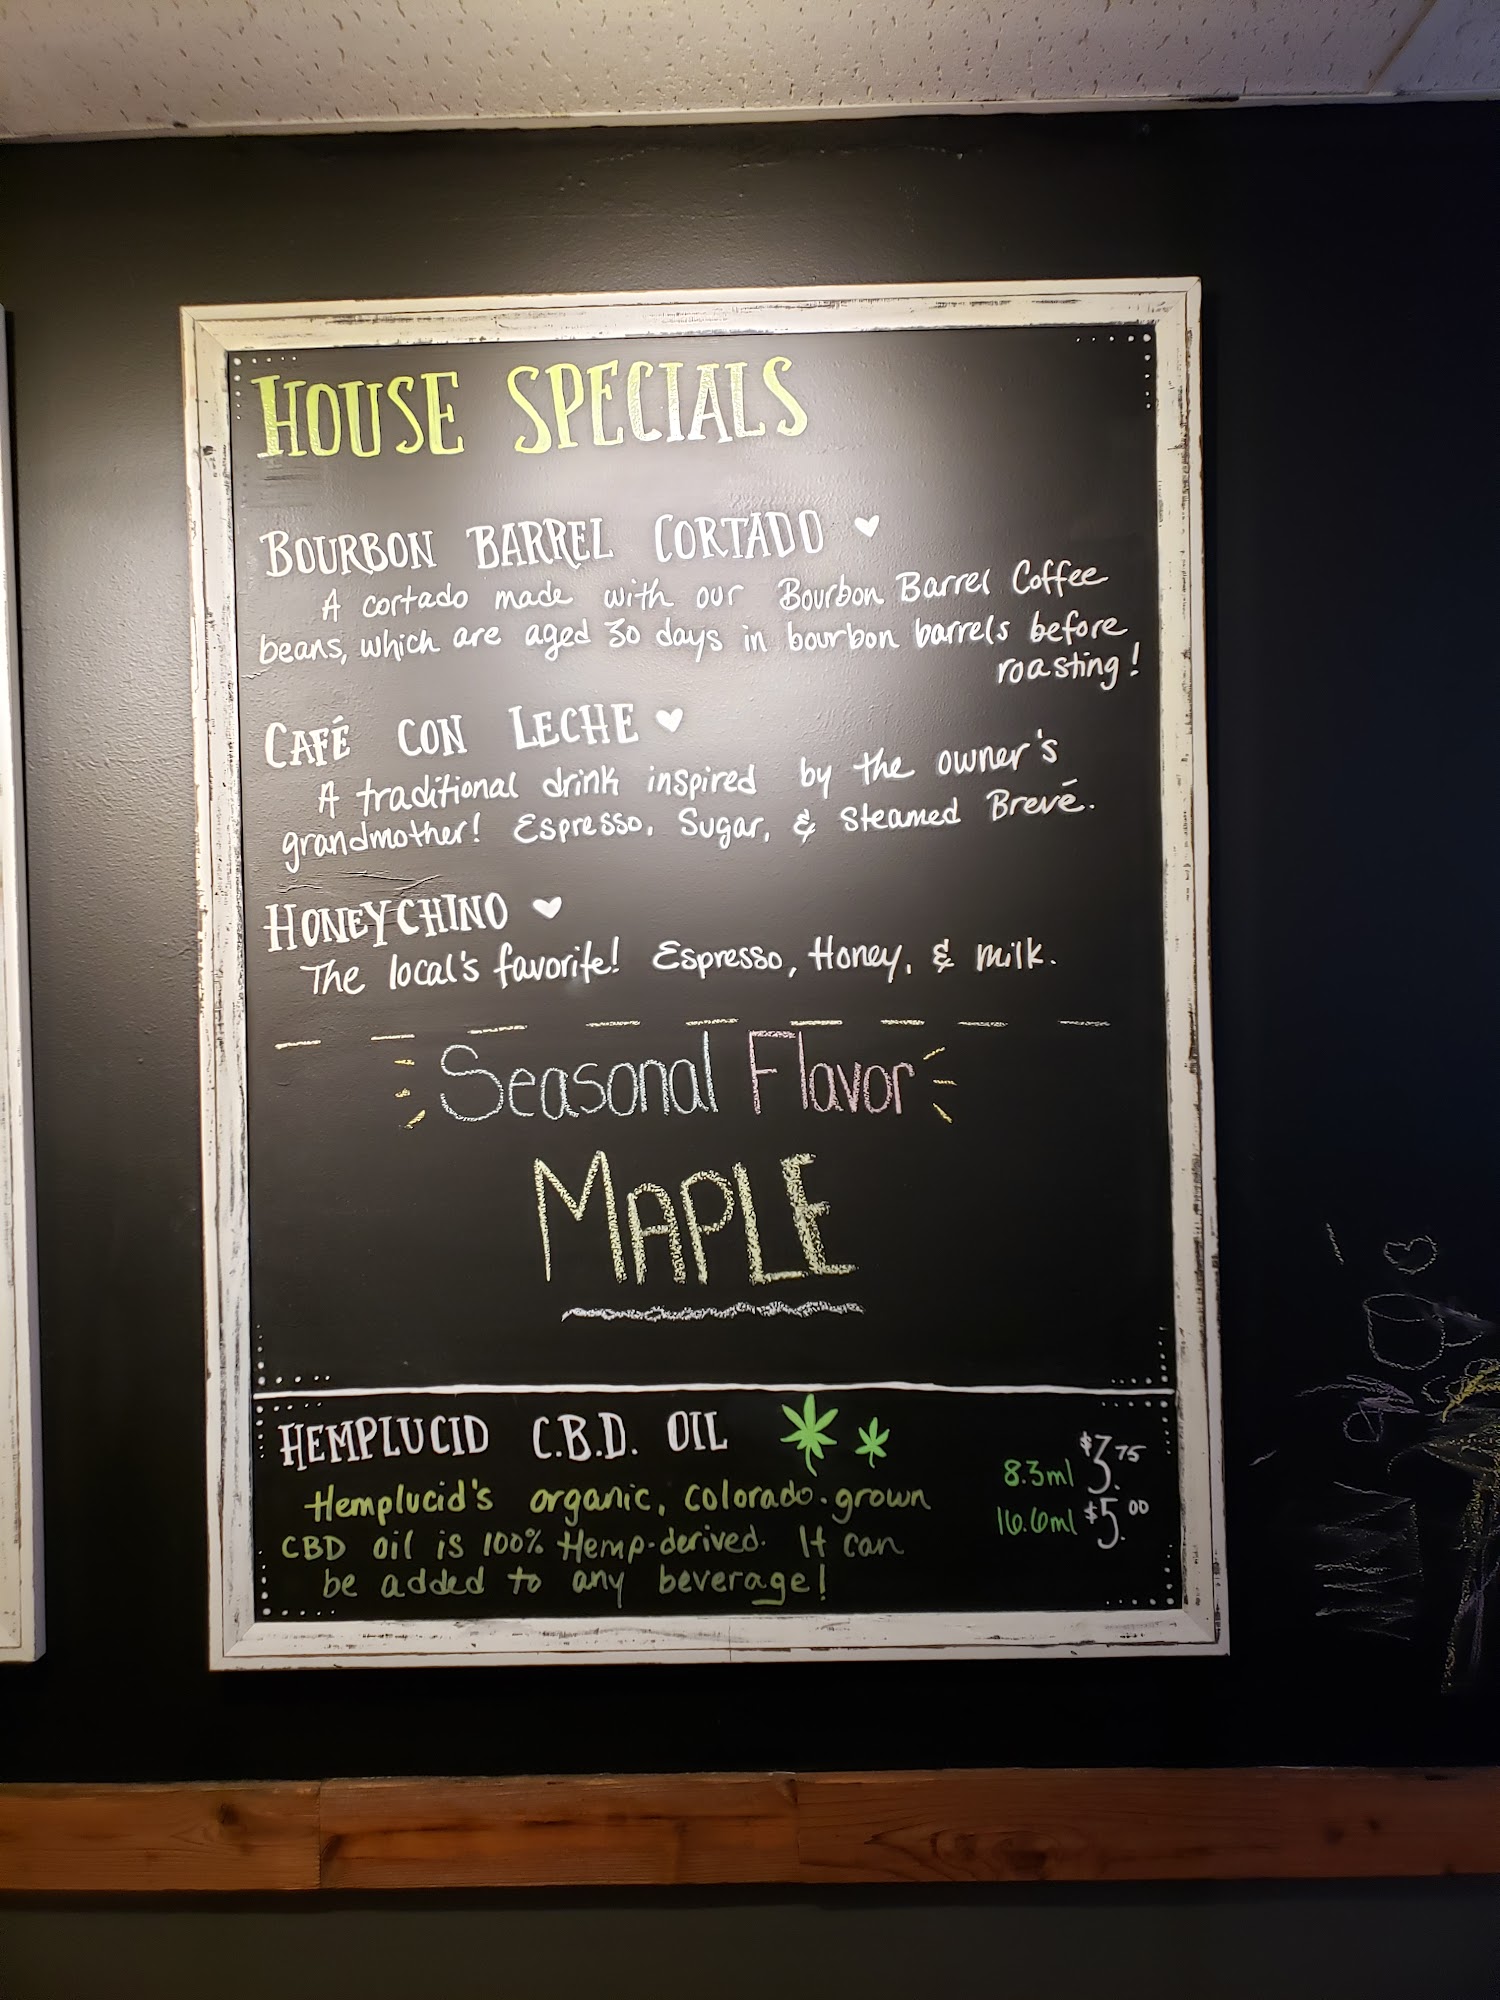 HOUSE SPECIALS
BOURBON BARREL CORTADO
A cortado made with our Bourbon Barrel Coffee
beans, which are aged 30 days in bourbon barrels before
roasting!
CAFÉ CON LECHE
A traditional drink inspired by the owner's
grandmother! Espresso, Sugar, & Steamed Brevé.
HONEYCHINO
The local's favorite! Espresso, Honey, & Milk.
Seasonal Flavor
MAPLE
HEMPLUCID C.B.D. OIL
Hemplucid's organic, Colorado-grown
CBD oil is 100% Hemp-derived. It can
be added to any beverage!
8.3ml $3.75
16.6ml $5.00